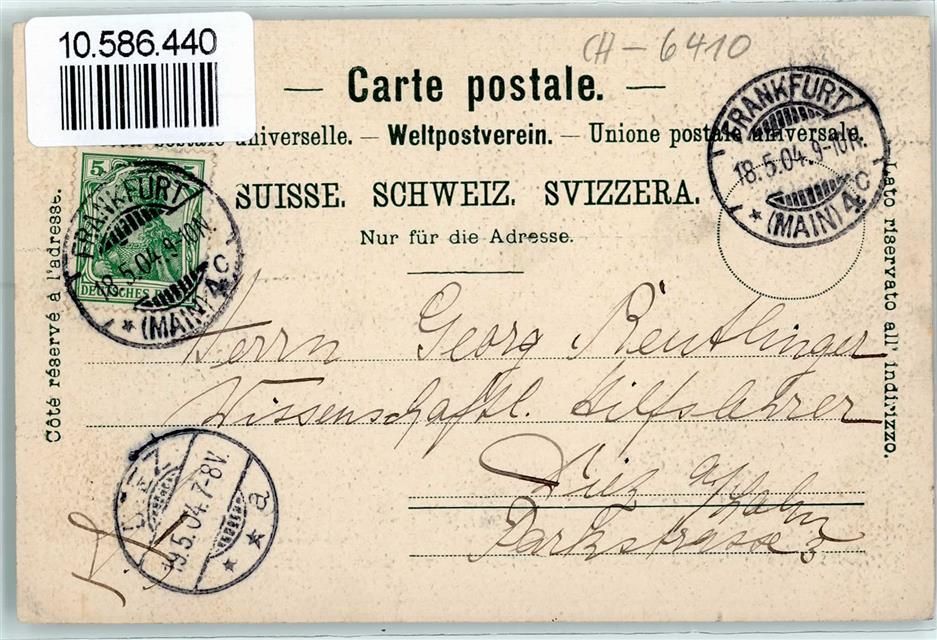 10.586.440
CH - 6410
— Carte postale. —
postale universelle. — Weltpostverein. — Unione postale universale.
SUISSE. SCHWEIZ. SVIZZERA.
Nur für die Adresse.
Côté réservé à l'adresse.
Lato riservato all' indirizzo.
5 5
DEUTSCHES
FRANKFURT
18.5.04.9-10N.
* (MAIN) 4c
FRANKFURT
18.5.04.9-10N.
* (MAIN) 4c
Herrn Georg Reutlinger
Wissenschaftl. Hilfslehrer
Diez a/Lahn
Parkstrasse 3
DIEZ
19.5.04.7-8V.
* * a